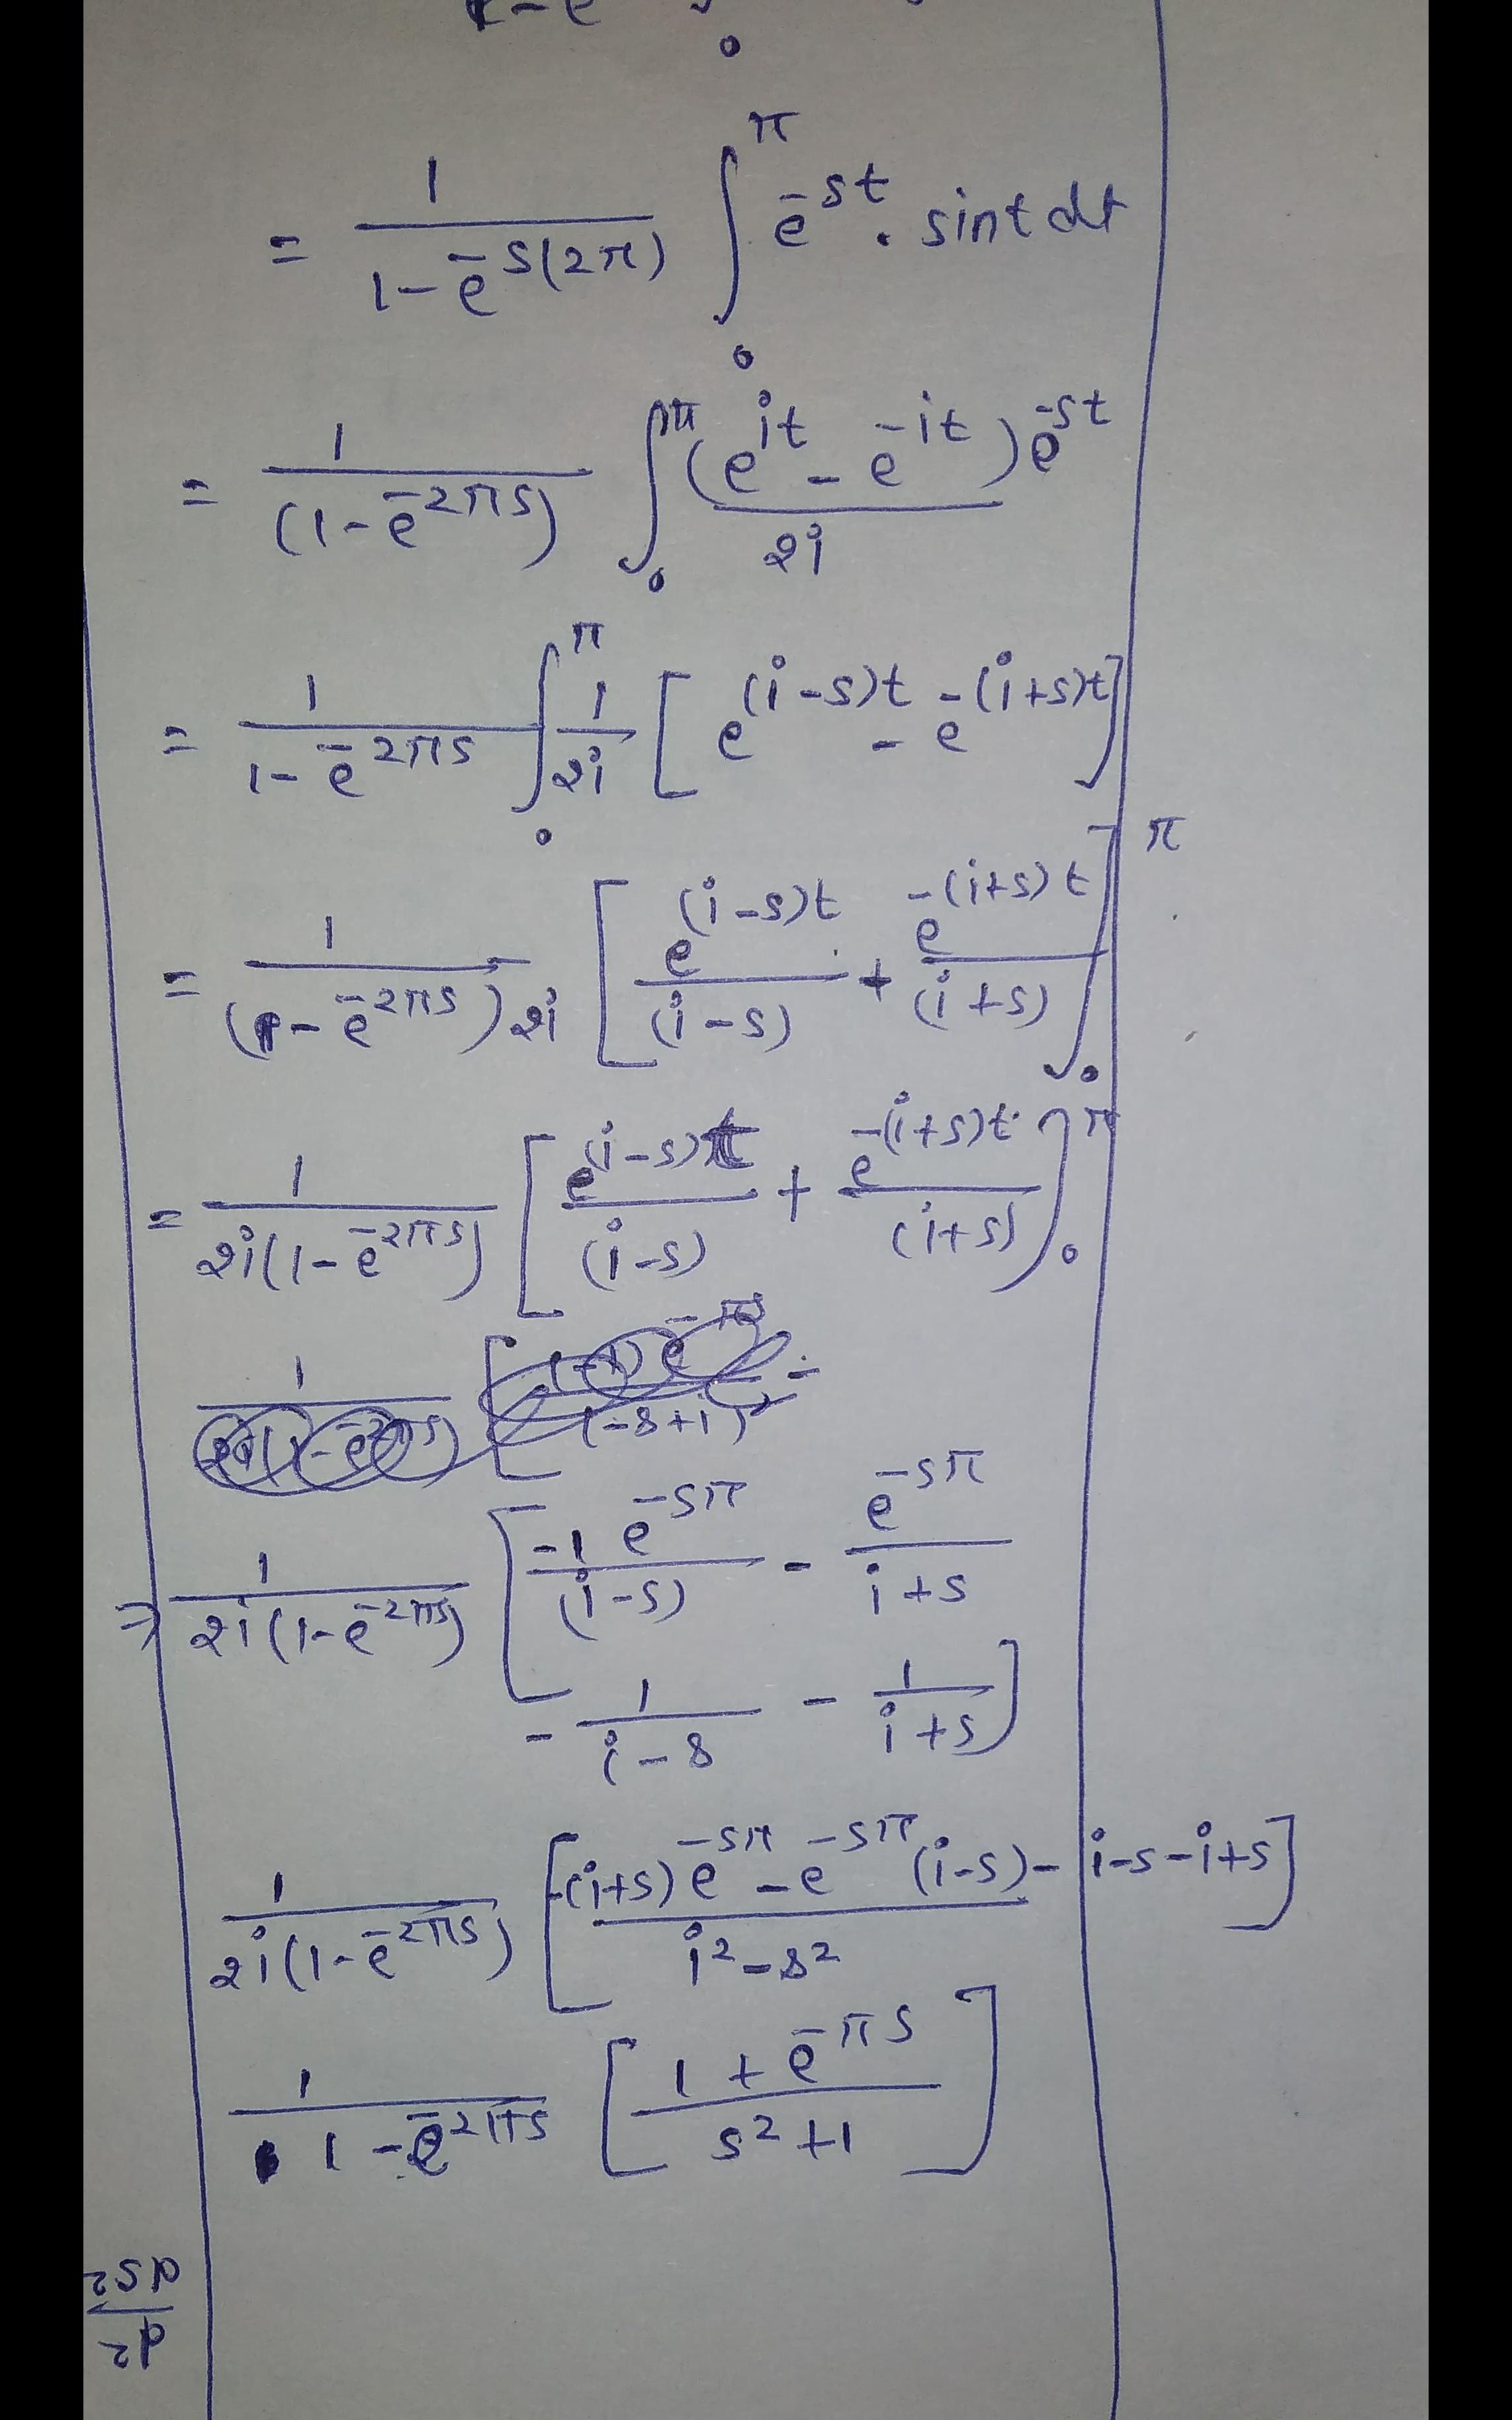 1-e
0
= 1/(1-e^-s(2π)) ∫_0^π e^-st . sint dt
= 1/(1-e^-2πs) ∫_0^π (e^it - e^-it) e^-st / 2i
= 1/(1-e^-2πs) ∫_0^π 1/2i [ e^(i-s)t - e^-(i+s)t ]
= 1/((1-e^-2πs) 2i) [ e^(i-s)t/(i-s) + e^-(i+s)t/(i+s) ]_0^π
= 1/(2i(1-e^-2πs)) [ e^(i-s)t/(i-s) + e^-(i+s)t/(i+s) ]_0^π
⇒ 1/(2i(1-e^-2πs)) [ -1 e^-sπ/(i-s) - e^-sπ/(i+s)
- 1/(i-s) - 1/(i+s) ]
1/(2i(1-e^-2πs)) [ -(i+s) e^-sπ - e^-sπ (i-s) - i-s-i+s / i²-s² ]
1/(1-e^-2πs) [ 1 + e^-πs / s²+1 ]